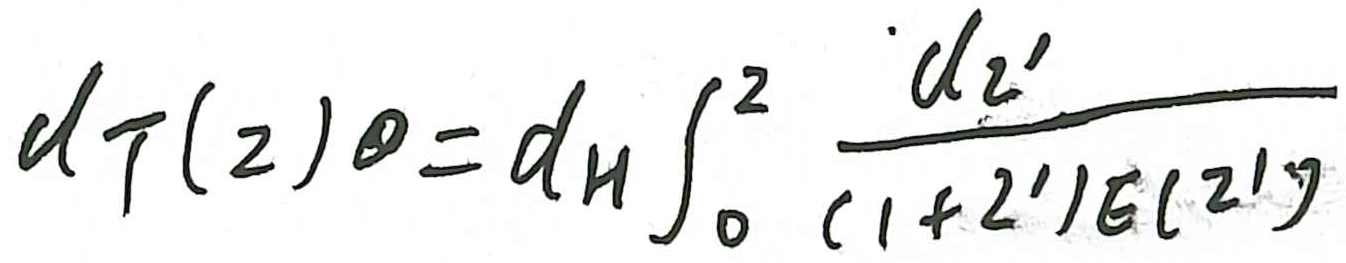 d_T(z) = d_H ∫_0^z dz' / ((1+z')E(z'))